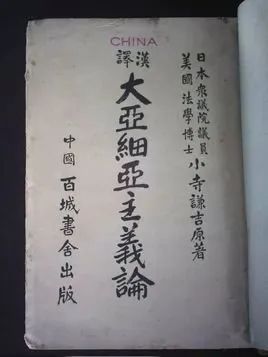 CHINA
日本衆議院議員
美國法學博士
小寺謙吉原著
漢譯
大亞細亞主義論
中國百城書舍出版